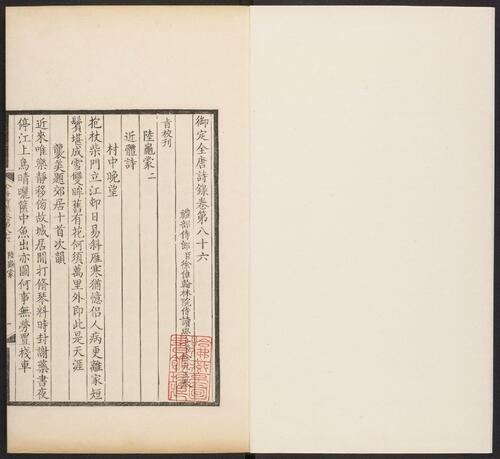 御定全唐詩錄卷第八十六
禮部侍郎臣徐倬翰林院侍讀
音校刊
陸龜蒙二
近體詩
村中晚望
抱杖柴門立江邨日易斜雁寒猶憶侶人病更離家短
鬢堪成雪雙眸舊有花何須萬里外即此是天涯
襲美題郊居十首次韻
近來唯樂靜移傍故城居閒打脩琴料時封謝藥書夜
停江上鳥晴曬篋中魚出亦圖何事無勞置棧車
陸龜蒙